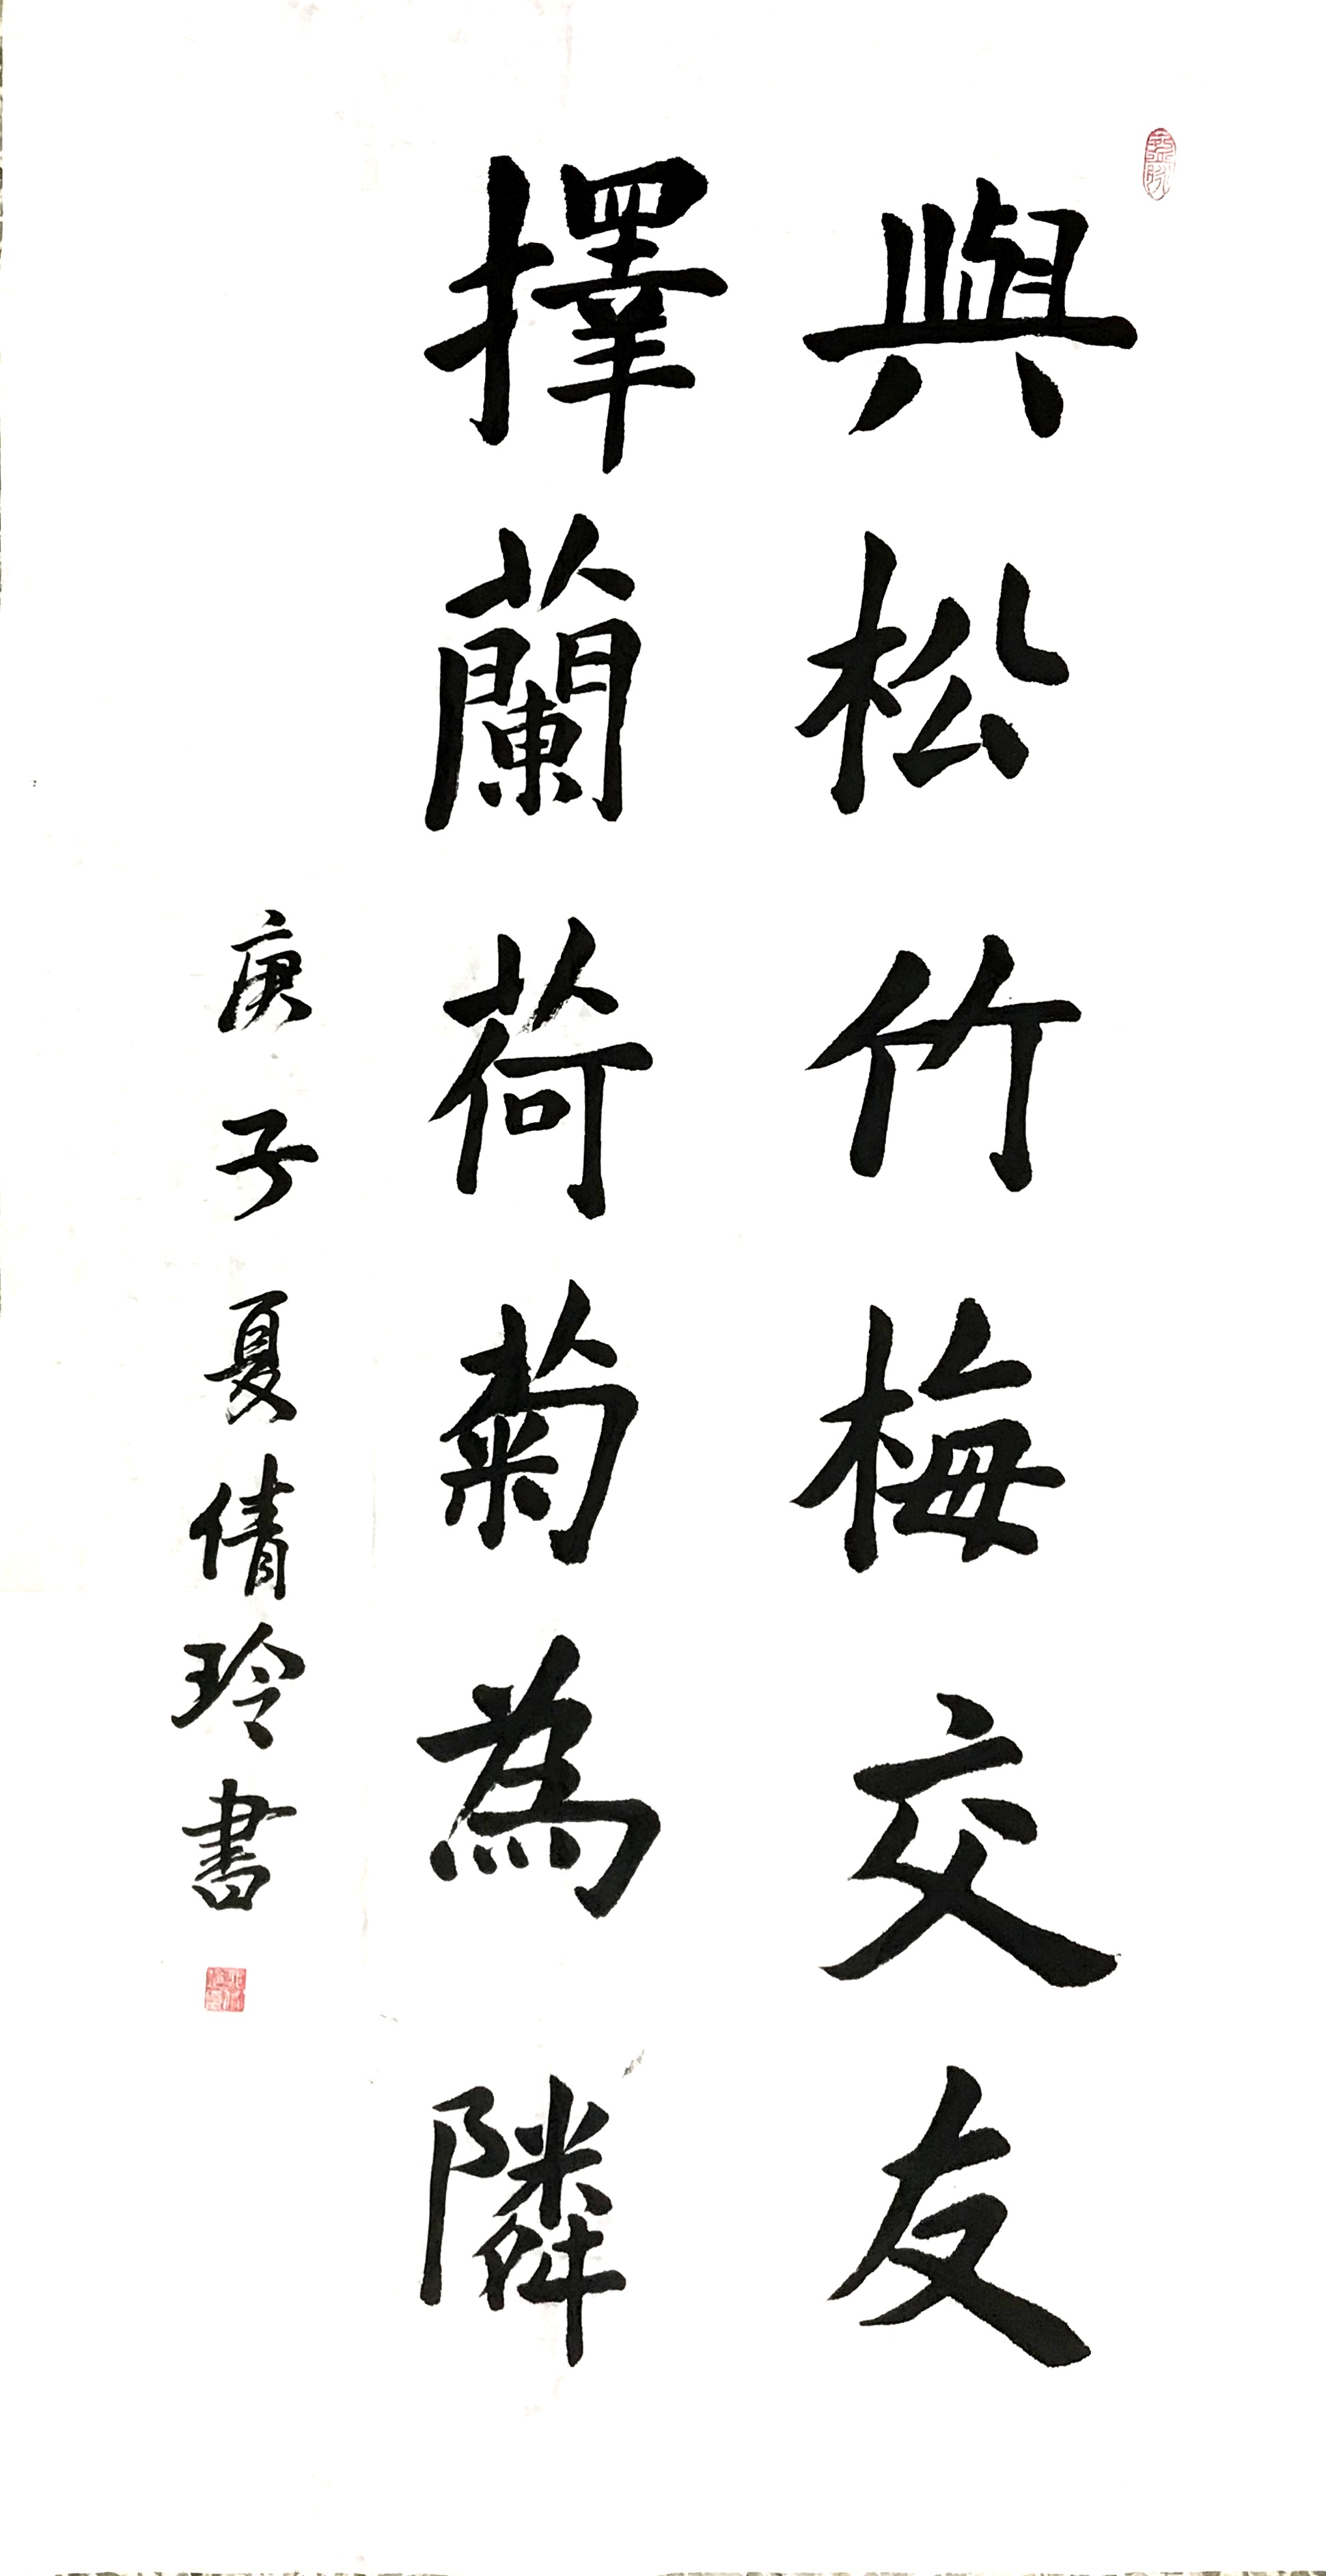 與松竹梅交友
擇蘭荷菊為隣
庚子夏倩玲書